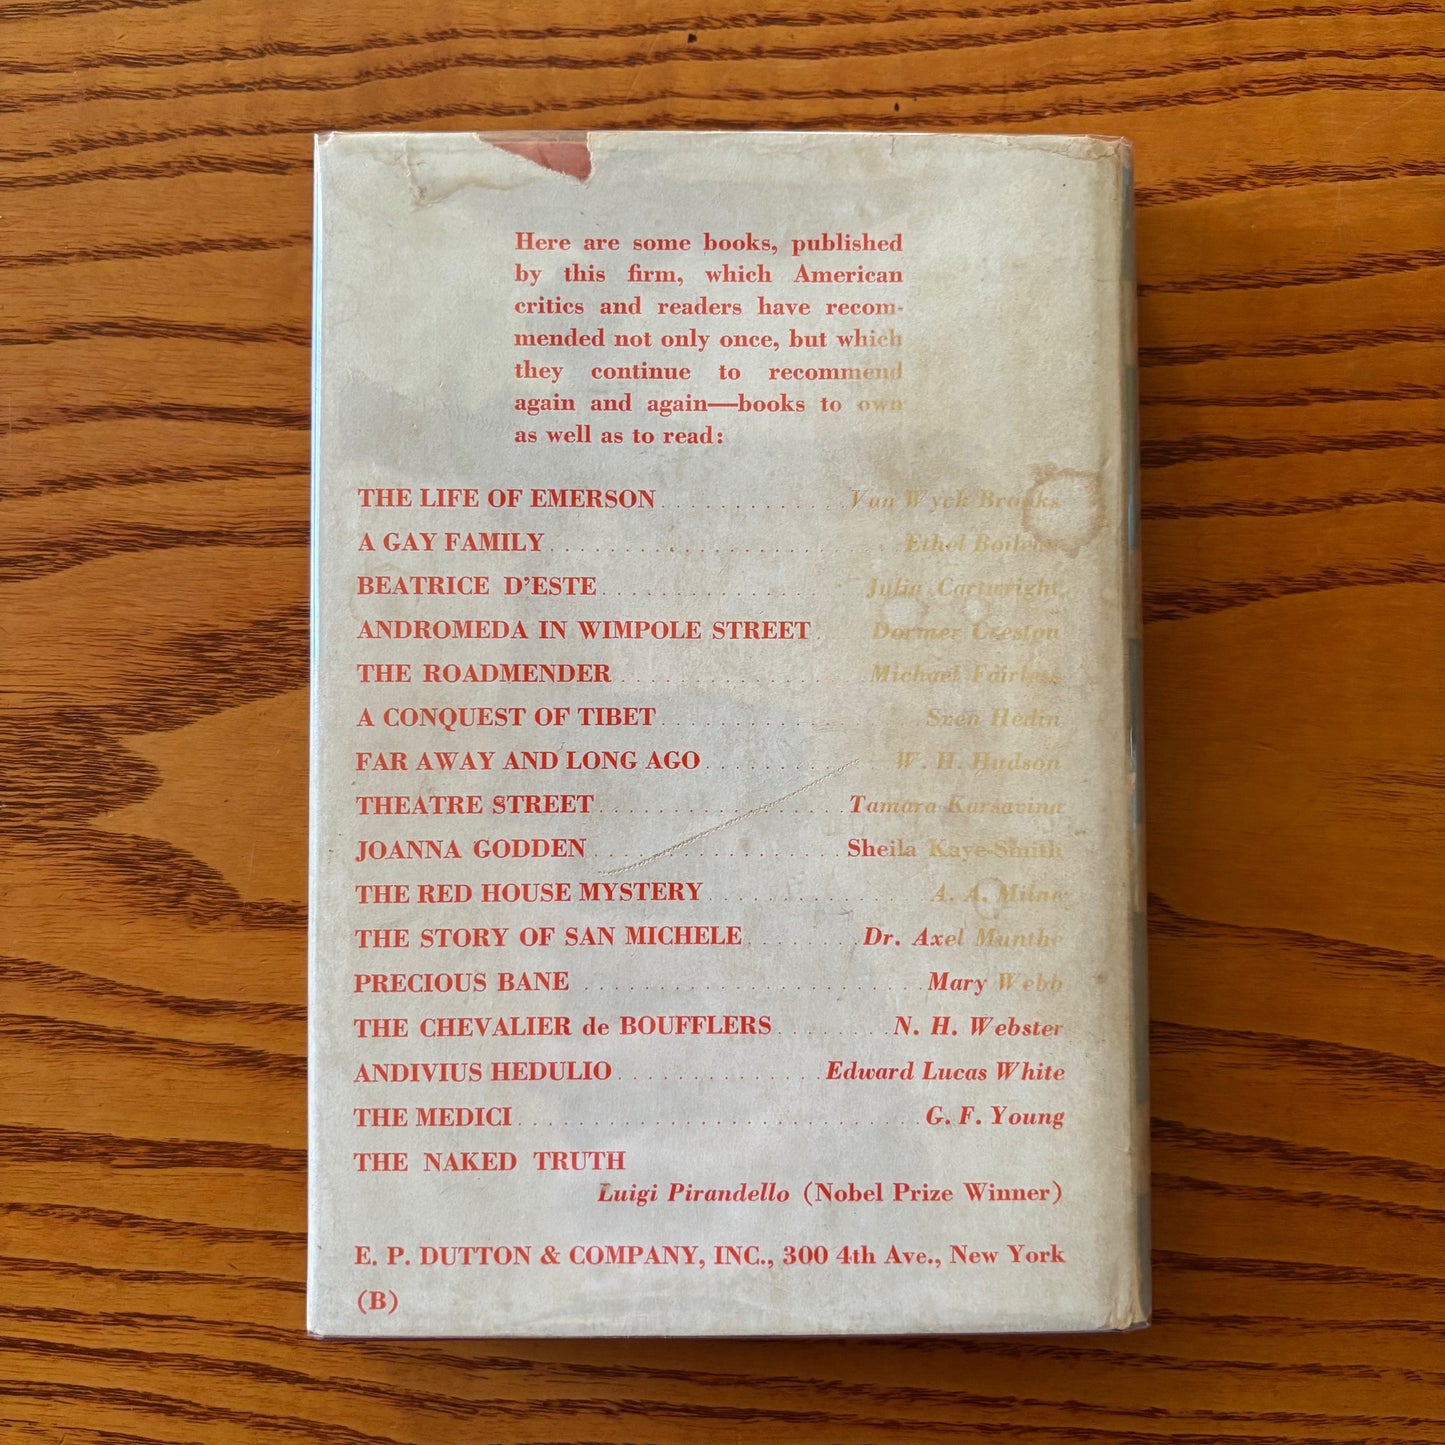 Here are some books, published
by this firm, which American
critics and readers have recom-
mended not only once, but which
they continue to recommend
again and again—books to own
as well as to read:
THE LIFE OF EMERSON . . . . . . . . . . . . . Van Wyck Brooks
A GAY FAMILY . . . . . . . . . . . . . . . . . . . . . . . . Ethel Boileau
BEATRICE D'ESTE . . . . . . . . . . . . . . . Julia Cartwright
ANDROMEDA IN WIMPOLE STREET . Dormer Creston
THE ROADMENDER . . . . . . . . . . . . . . . Michael Fairless
A CONQUEST OF TIBET . . . . . . . . . . . . . . . . . . Sven Hedin
FAR AWAY AND LONG AGO . . . . . . . . . . . . W. H. Hudson
THEATRE STREET . . . . . . . . . . . . . . . . . Tamara Karsavina
JOANNA GODDEN . . . . . . . . . . . . . . . . . Sheila Kaye-Smith
THE RED HOUSE MYSTERY . . . . . . . . . . . . . . . A. A. Milne
THE STORY OF SAN MICHELE . . . . . . . . Dr. Axel Munthe
PRECIOUS BANE . . . . . . . . . . . . . . . . . . . . . . . Mary Webb
THE CHEVALIER de BOUFFLERS . . . . . . . . N. H. Webster
ANDIVIUS HEDULIO . . . . . . . . . . . . . . Edward Lucas White
THE MEDICI . . . . . . . . . . . . . . . . . . . . . . . . . . . G. F. Young
THE NAKED TRUTH
Luigi Pirandello (Nobel Prize Winner)
E. P. DUTTON & COMPANY, INC., 300 4th Ave., New York
(B)